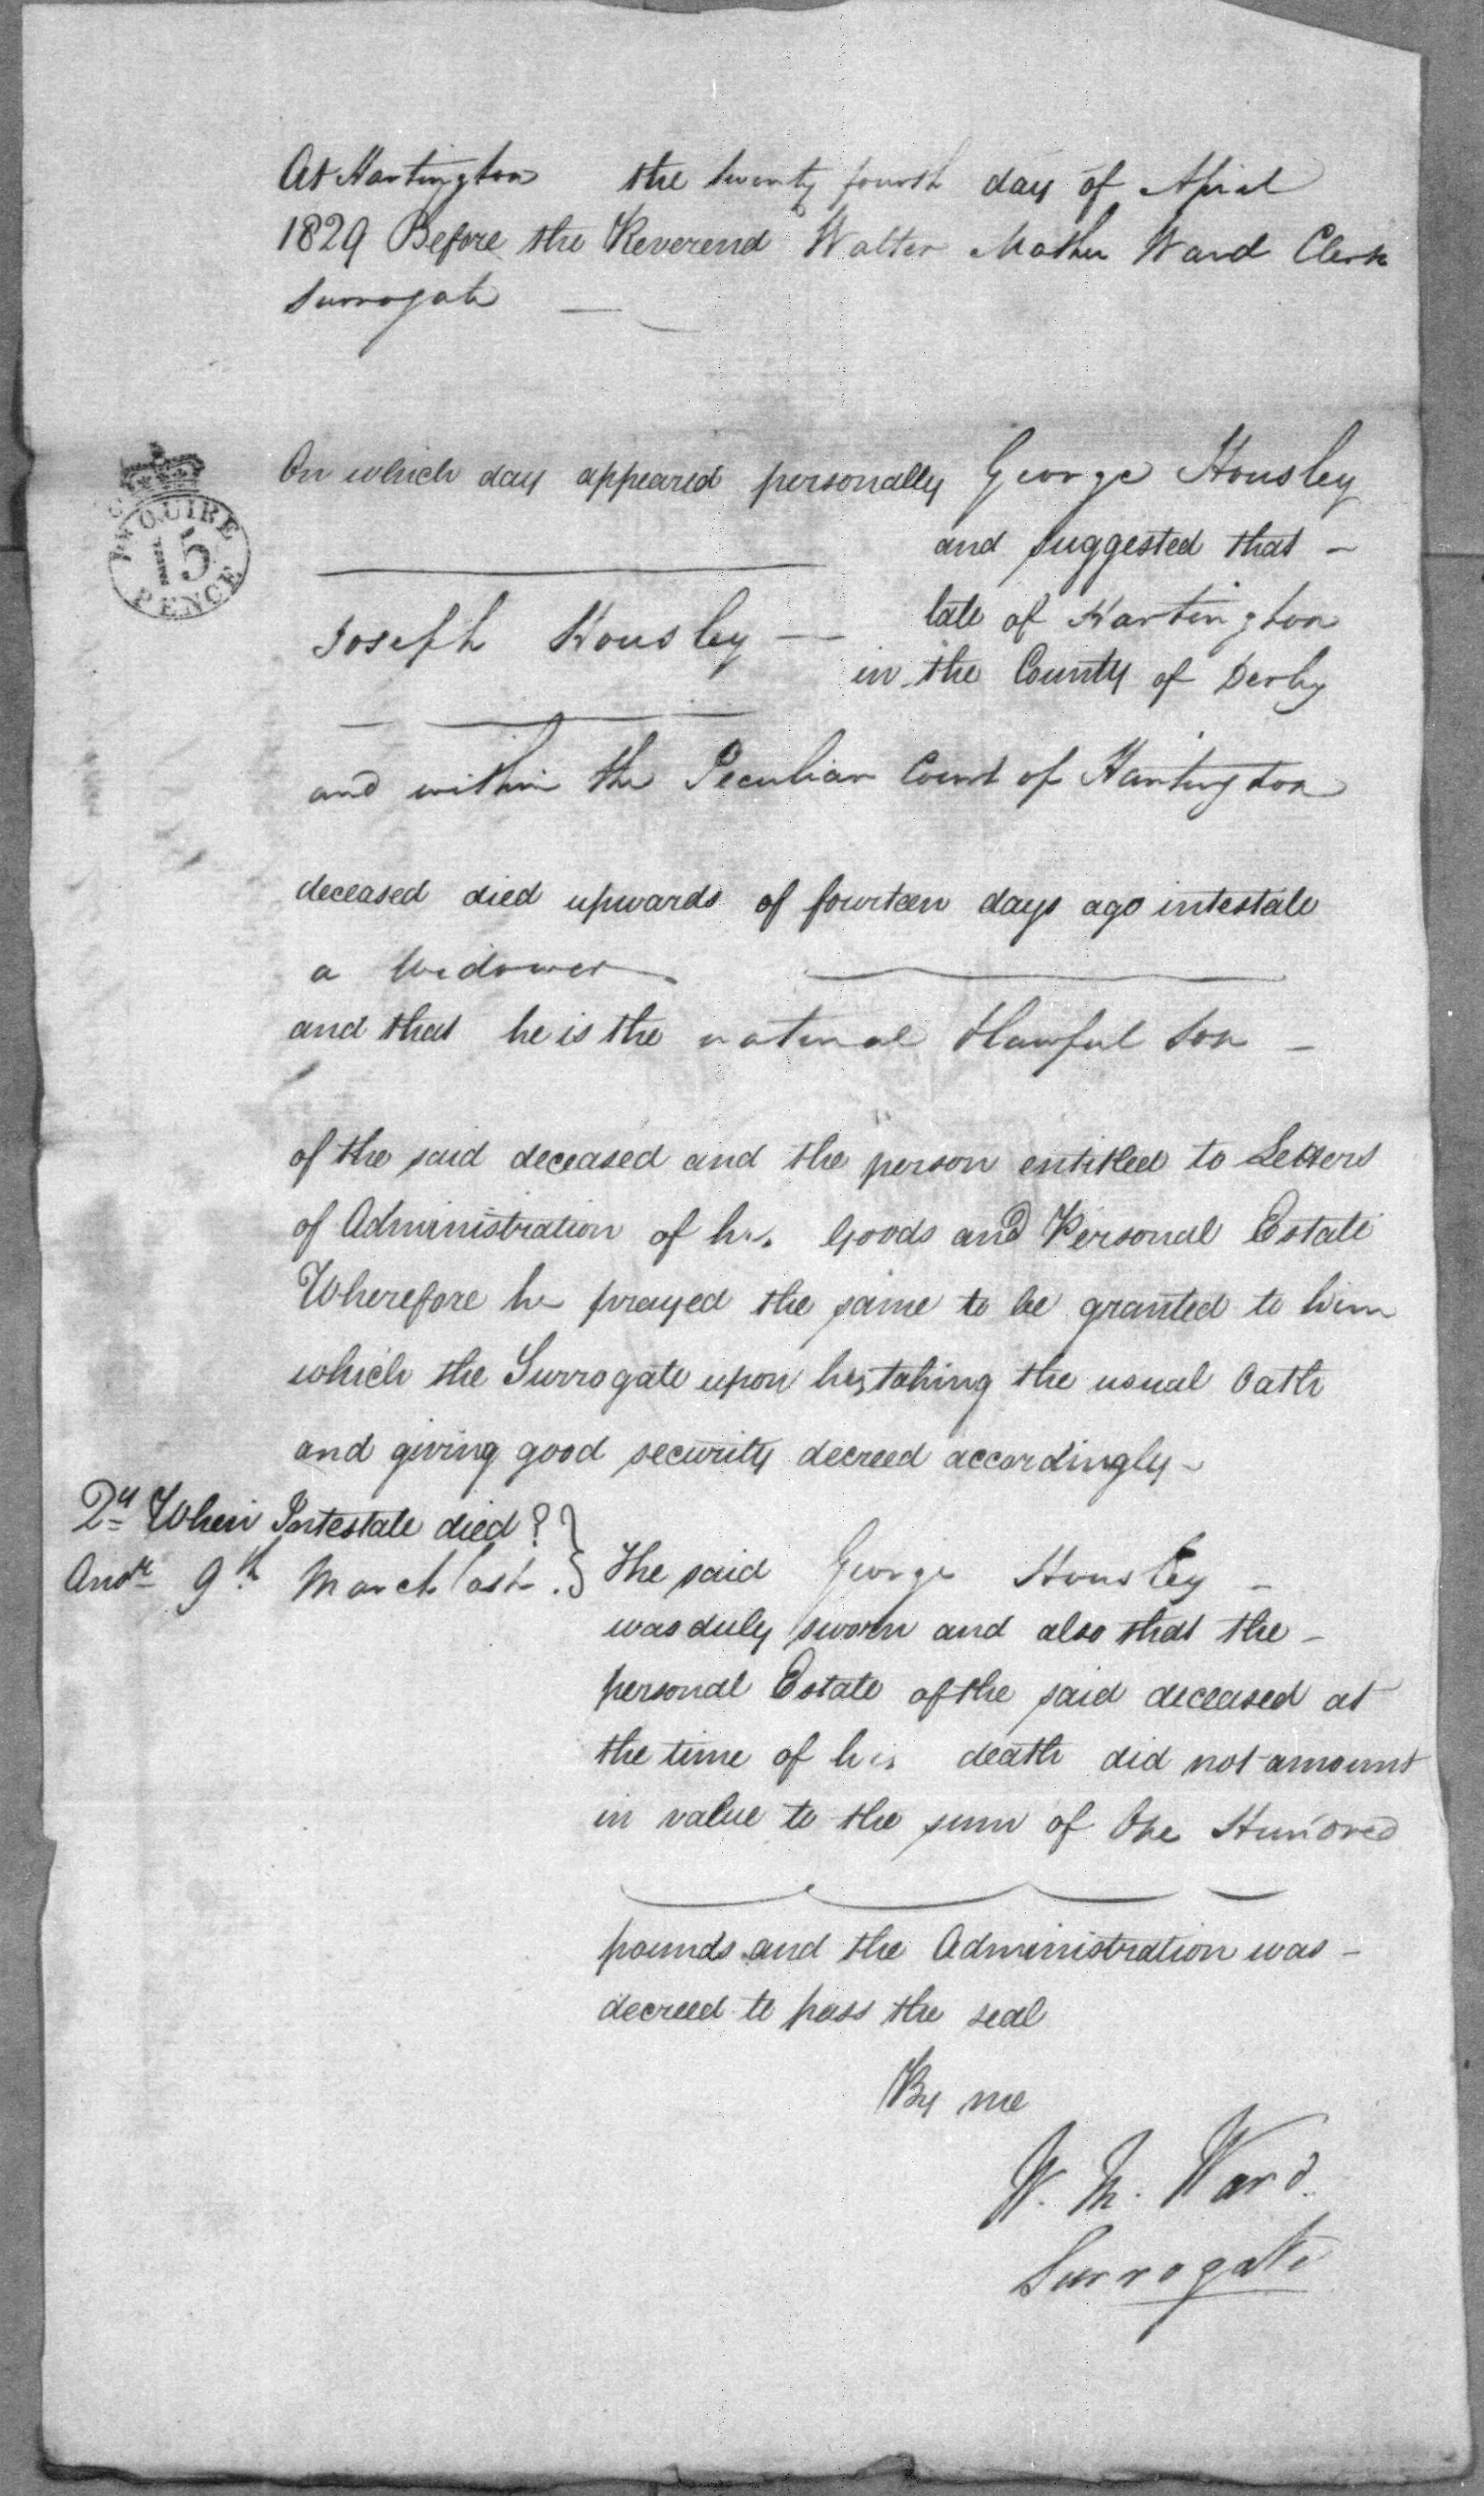 At Hartington the twenty fourth day of April
1829 Before the Reverend Walter Mather Ward Clerk
Surrogate
PR QUIRE
15
PENCE
On which day appeared personally George Housley
and suggested that
Joseph Housley late of Hartington
in the County of Derby
and within the Peculiar Court of Hartington
deceased died upwards of fourteen days ago intestate
a Widower
and that he is the natural & lawful son
of the said deceased and the person entitled to Letters
of Administration of his Goods and Personal Estate
Wherefore he prayed the same to be granted to him
which the Surrogate upon his taking the usual Oath
and giving good security decreed accordingly
Qy When Intestate died?
Ansr 9th March last.
The said George Housley
was duly sworn and also that the
personal Estate of the said deceased at
the time of his death did not amount
in value to the sum of One Hundred
pounds and the Administration was
decreed to pass the seal
By me
W. M. Ward.
Surrogate